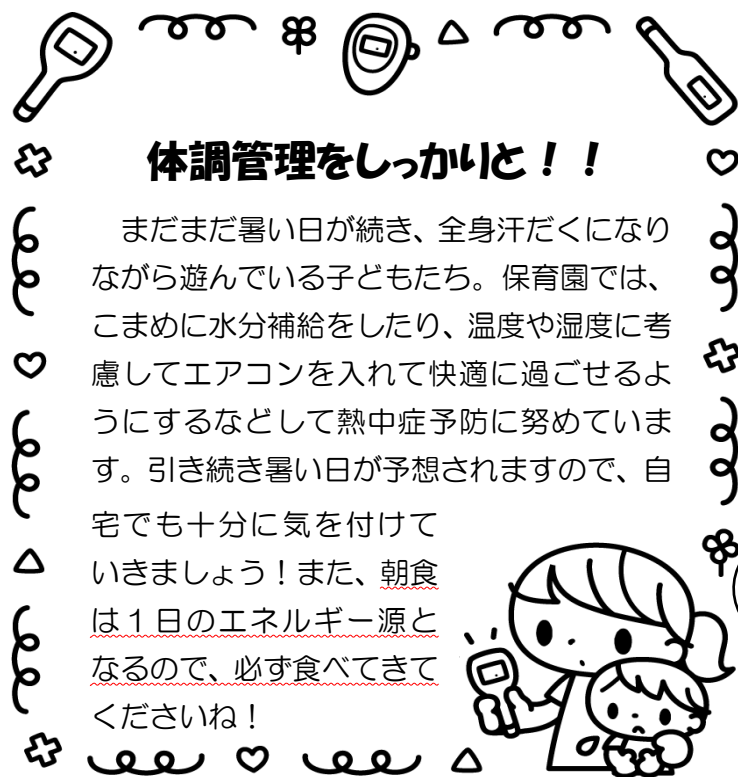 体調管理をしっかりと！！
　まだまだ暑い日が続き、全身汗だくになり
ながら遊んでいる子どもたち。保育園では、
こまめに水分補給をしたり、温度や湿度に考
慮してエアコンを入れて快適に過ごせるよ
うにするなどして熱中症予防に努めていま
す。引き続き暑い日が予想されますので、自
宅でも十分に気を付けて
いきましょう！また、朝食
は１日のエネルギー源と
なるので、必ず食べてきて
くださいね！